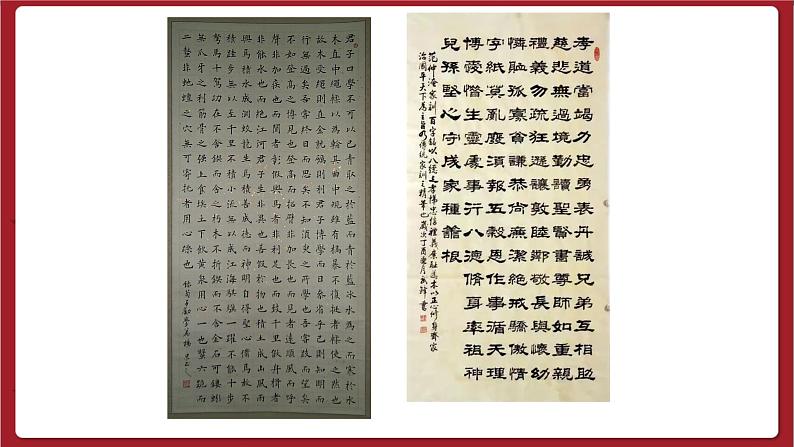 君子曰學不可以已青取之於藍而青於藍冰水為之而寒於水
木直中繩輮以為輪其曲中規雖有槁暴不復挺者輮使之然也
故木受繩則直金就礪則利君子博學而日參省乎己則知明而
行無過矣吾嘗終日而思矣不如須臾之所學也吾嘗跂而望矣
不如登高之博見也登高而招臂非加長也而見者遠順風而呼
聲非加疾也而聞者彰假輿馬者非利足也而致千里假舟楫者
非能水也而絕江河君子生非異也善假於物也積土成山風雨
興焉積水成淵蛟龍生焉積善成德而神明自得聖心備焉故不
積跬步無以至千里不積小流無以成江海騏驥一躍不能十步
駑馬十駕功在不舍鍥而舍之朽木不折鍥而不舍金石可鏤蚓
無爪牙之利筋骨之強上食埃土下飲黃泉用心一也蟹六跪而
二螯非蛇鱔之穴無可寄托者用心躁也 錄荀子勸學篇
孝道當竭力忠勇表丹誠兄弟互相助
慈悲無過境勤讀聖賢書尊師如重親
禮義勿疏狂遜讓敦睦鄰敬長與懷幼
憐恤孤寡貧謙恭尚廉潔絕戒驕傲情
字紙莫亂廢須報五穀恩作事循天理
博愛惜生靈處事行八德修身率祖神
兒孫堅心守成家種善根
范仲淹家訓百字銘以八德之孝悌忠信禮義廉恥為本以正心修身齊家
治國平天下為主旨乃傳統家訓之精華也歲次丁酉 書